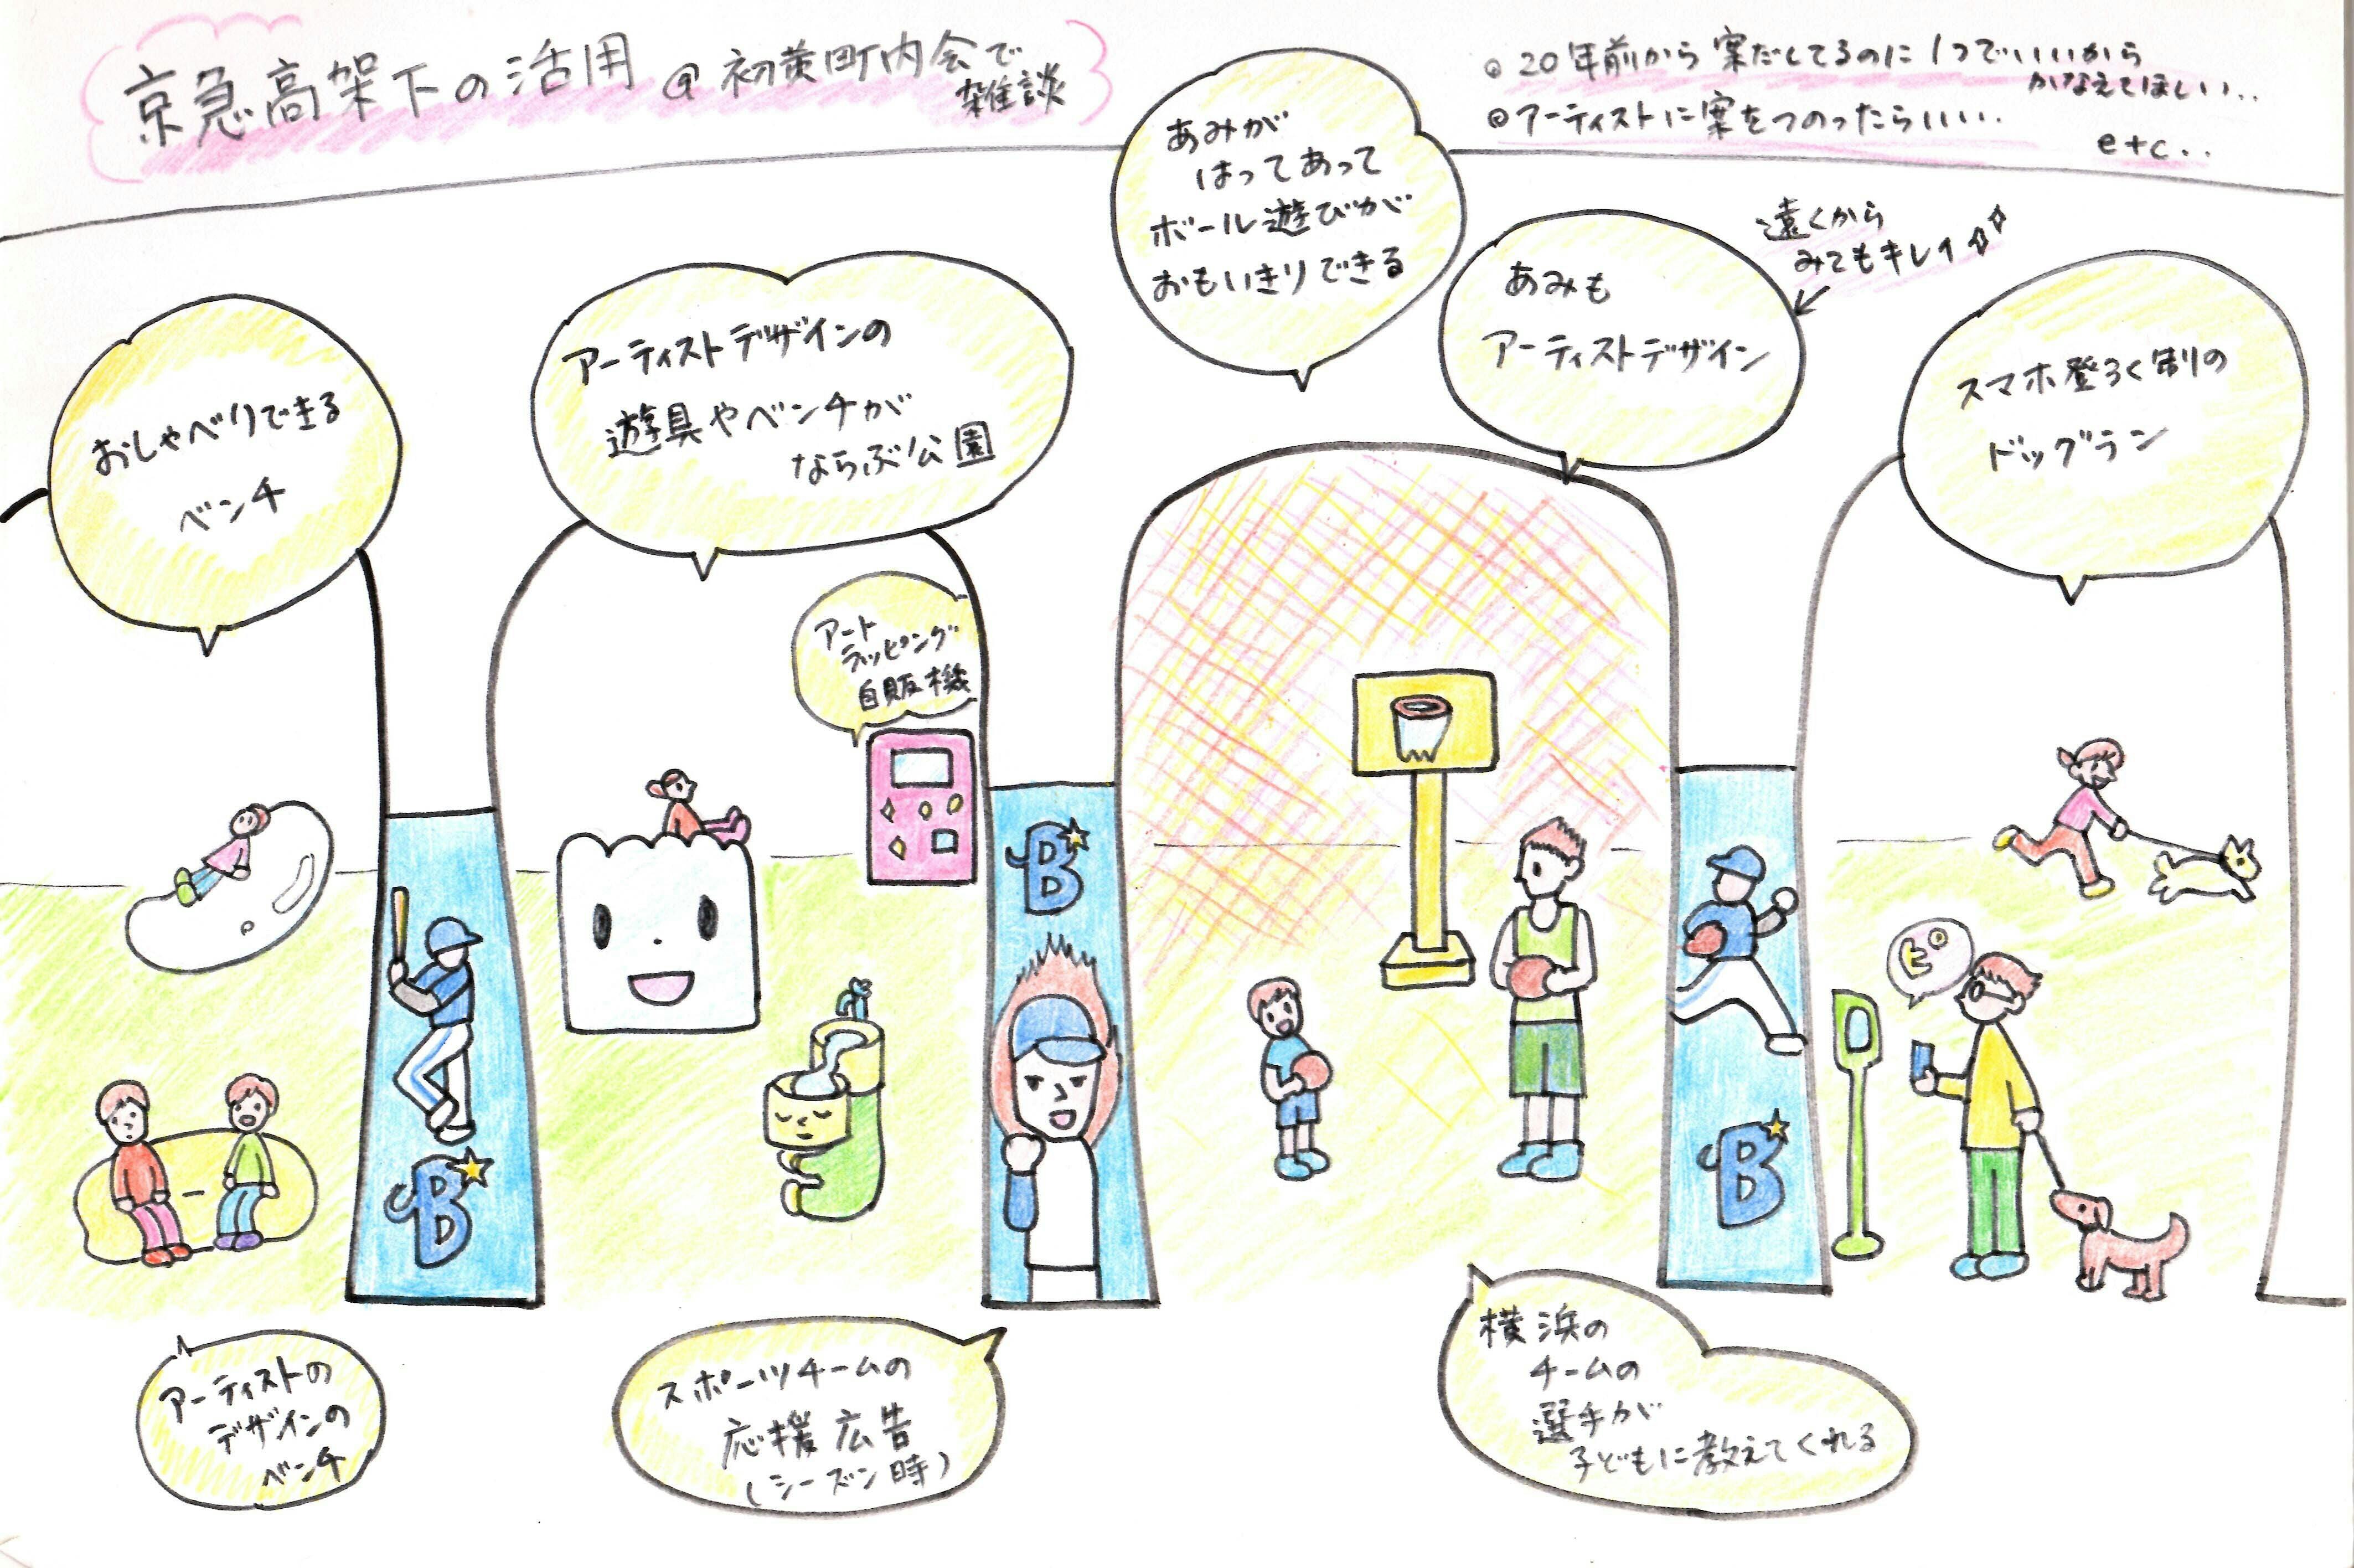 京急高架下の活用 @初黄町内会で
雑談
◎20年前から案だしてるのに1つでいいから
かなえてほしい..
◎アーティストに案をつのったらいい..
etc..
おしゃべりできる
ベンチ
アーティストデザインの
遊具やベンチが
ならぶ公園
あみが
はってあって
ボール遊びが
おもいきりできる
あみも
アーティストデザイン
遠くから
みてもキレイ
スマホ登ろく制の
ドッグラン
アート
ラッピング
自販機
B
B
B
ピ
アーティストの
デザインの
ベンチ
スポーツチームの
応援広告
(シーズン時)
横浜の
チームの
選手が
子どもに教えてくれる